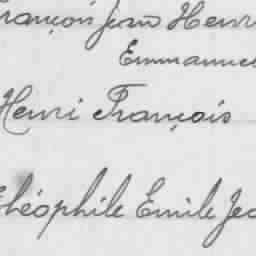 François Jean Henri
Emmanuel
Henri François
Théophile Emile Jea